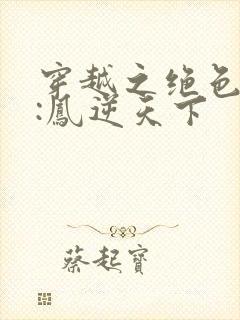 穿越之绝色
:鳳逆天下
蔡起寶